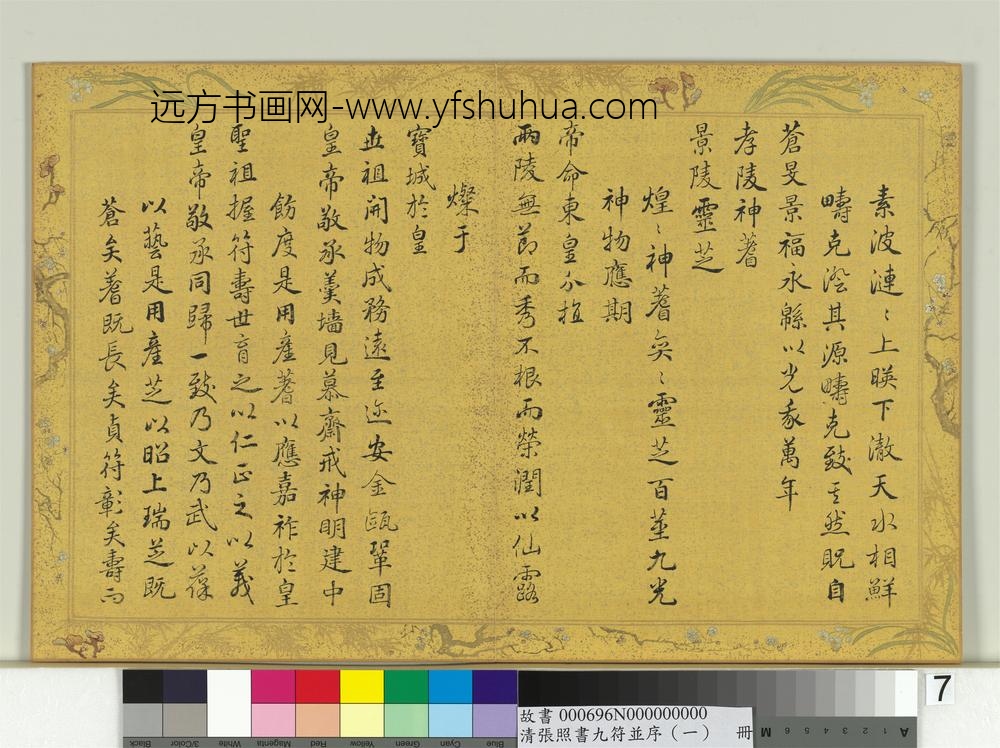 远方书画网-www.yfshuhua.com
素波漣〻上暎下澈天水相鮮
疇克澄其源疇克致其然貺自
蒼旻景福永緜以光我萬年
孝陵神蓍
景陵靈芝
煌〻神蓍奕〻靈芝百莖九光
神物應期
帝命東皇分植
兩陵無節而秀不根而榮潤以仙露
燦于
寶城於皇
世祖開物成務遠至迩安金甌鞏固
皇帝敬承羹墻見慕齋戒神明建中
飭度是用產蓍以應嘉祚於皇
聖祖握符壽世育之以仁正之以義
皇帝敬承同歸一致乃文乃武以葆
以藝是用產芝以昭上瑞芝既
蒼矣蓍既長矣貞符彰矣壽而
7
故書 000696N000000000
清張照書九符並序（一） 冊
Black
3/Color
White
Magenta
Red
Yellow
Green
Cyan
Blue
A 1 2 3 4 5 6 M